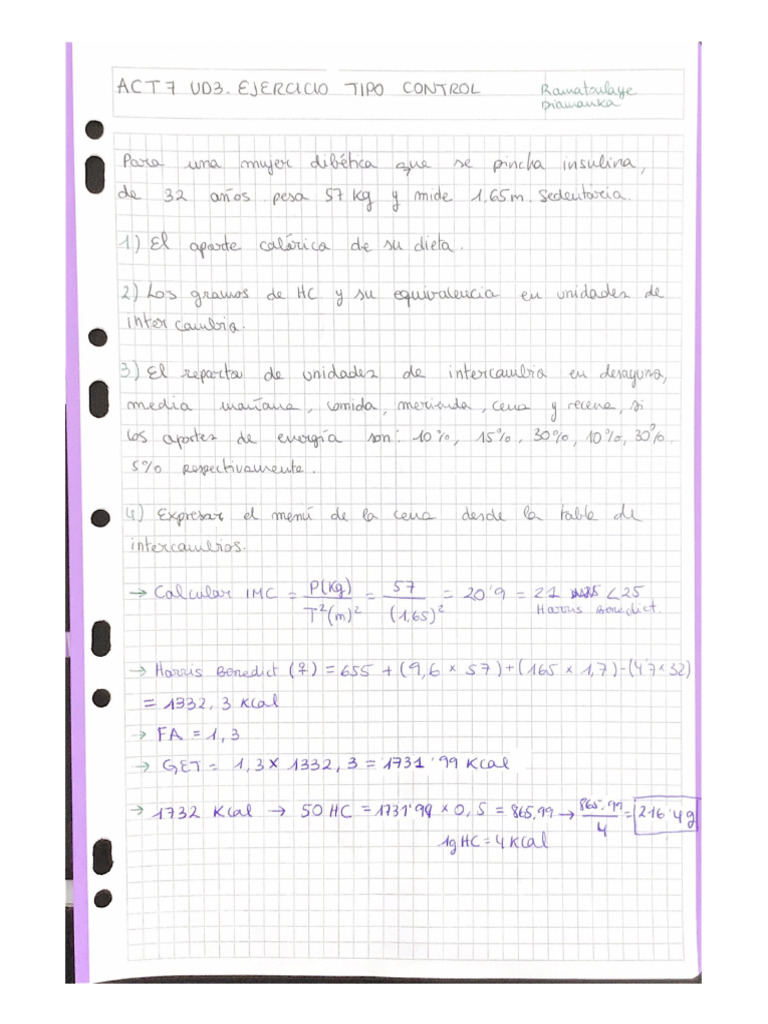 ACT7 UD3. EJERCICIO TIPO CONTROL
Ramatoulaye
Diamanka
Para una mujer dibética que se pincha insulina,
de 32 años pesa 57 kg y mide 1,65m. Sedentaria.
1) El aporte calórica de su dieta.
2) Los gramos de HC y su equivalencia en unidades de
intercambia.
3) El reparto de unidades de intercambia en desayuno,
media mañana, comida, merienda, cena y recena, si
los aportes de energía son: 10%, 15%, 30%, 10%, 30%,
5% respectivamente.
4) Expresar el menú de la cena desde la table de
intercambios.
→ Calcular IMC = P(Kg) / T²(m)² = 57 / (1,65)² = 20'9 = 21 < 25
Harris Benedict.
→ Harris Benedict (♀) = 655 + (9,6 × 57) + (165 × 1,7) - (4'7 × 32)
= 1332,3 Kcal
→ FA = 1,3
→ GET = 1,3 × 1332,3 = 1731'99 Kcal
→ 1732 Kcal → 50 HC = 1731'99 × 0,5 = 865,99 → 865,99 / 4 = 216'4g
1g HC = 4 Kcal